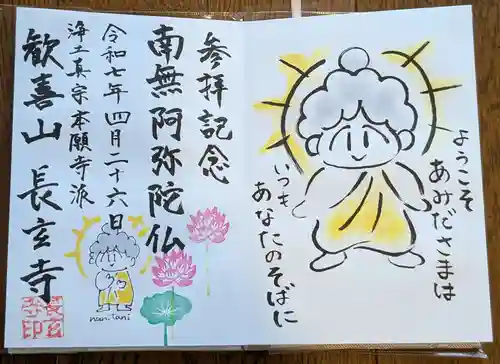 ようこそ
あみださまは
いつも
あなたのそばに
参拝記念
南無阿弥陀仏
令和七年四月二十六日
浄土真宗本願寺派
歓喜山 長玄寺
nan-tani
長玄
寺印